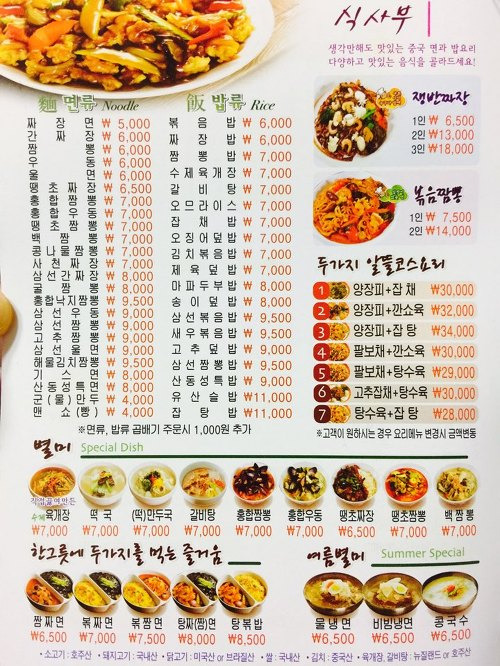 식사부
생각만해도 맛있는 중국 면과 밥요리
다양하고 맛있는 음식을 골라드세요!
麵 면류 Noodle
짜장면 ₩ 5,000
간짜장 ₩ 6,000
짬뽕 ₩ 6,000
우동 ₩ 6,000
울면 ₩ 6,000
땡초짜장 ₩ 6,500
홍합짬뽕 ₩ 7,000
홍합우동 ₩ 7,000
땡초짬뽕 ₩ 7,000
백짬뽕 ₩ 7,000
콩나물짬뽕 ₩ 7,000
사천짜장 ₩ 7,000
삼선간짜장 ₩ 8,000
굴짬뽕 ₩ 8,000
홍합낙지짬뽕 ₩ 9,500
삼선우동 ₩ 9,000
삼선짬뽕 ₩ 9,000
고추짬뽕 ₩ 9,000
삼선울면 ₩ 9,000
해물김치짬뽕 ₩ 9,500
기스면 ₩ 8,000
산동성특면 ₩ 8,000
군(물)만두 ₩ 4,000
맨쇼(빵) ₩ 4,000
飯 밥류 Rice
볶음밥 ₩ 6,000
짜장밥 ₩ 6,000
짬뽕밥 ₩ 7,000
수제육개장 ₩ 7,000
갈비탕 ₩ 7,000
오므라이스 ₩ 7,000
잡채밥 ₩ 7,000
오징어덮밥 ₩ 7,000
김치볶음밥 ₩ 7,000
제육덮밥 ₩ 7,000
마파두부밥 ₩ 8,000
송이덮밥 ₩ 8,000
삼선볶음밥 ₩ 8,500
새우볶음밥 ₩ 8,500
고추덮밥 ₩ 9,000
삼선짬뽕밥 ₩ 9,500
산동성특밥 ₩ 9,000
유산슬밥 ₩11,000
잡탕밥 ₩11,000
※면류, 밥류 곱배기 주문시 1,000원 추가
쟁반짜장
1인 ₩ 6,500
2인 ₩13,000
3인 ₩18,000
볶음짬뽕
1인 ₩ 7,500
2인 ₩14,000
두가지 알뜰코스요리
1 양장피+잡채 ₩30,000
2 양장피+깐소육 ₩32,000
3 양장피+잡탕 ₩34,000
4 팔보채+깐소육 ₩30,000
5 팔보채+탕수육 ₩29,000
6 고추잡채+탕수육 ₩30,000
7 탕수육+잡탕 ₩28,000
※고객이 원하시는 경우 요리메뉴 변경시 금액변동
별미 Special Dish
직접끓여만든
수제 육개장 ₩7,000
떡국 ₩7,000
(떡)만두국 ₩7,000
갈비탕 ₩7,000
홍합짬뽕 ₩7,000
홍합우동 ₩7,000
땡초짜장 ₩6,500
땡초짬뽕 ₩7,000
백짬뽕 ₩7,000
한그릇에 두가지를 먹는 즐거움
짬짜면 ₩6,500
볶짜면 ₩7,000
볶짬면 ₩7,500
탕짜(짬)면 ₩8,000
탕볶밥 ₩8,500
여름별미 Summer Special
물냉면 ₩6,500
비빔냉면 ₩6,500
콩국수 ₩6,500
• 소고기 : 호주산 • 돼지고기 : 국내산 • 닭고기 : 미국산 or 브라질산 • 쌀 : 국내산 • 김치 : 중국산 • 육개장, 갈비탕 : 뉴질랜드 or 호주산